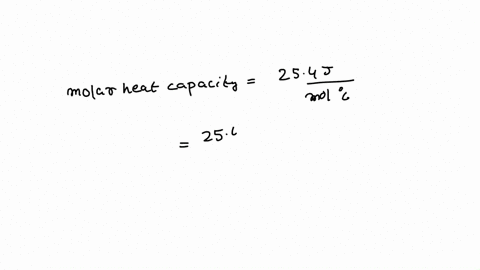 molar heat capacity = 25.4 J / mol °C
= 25.